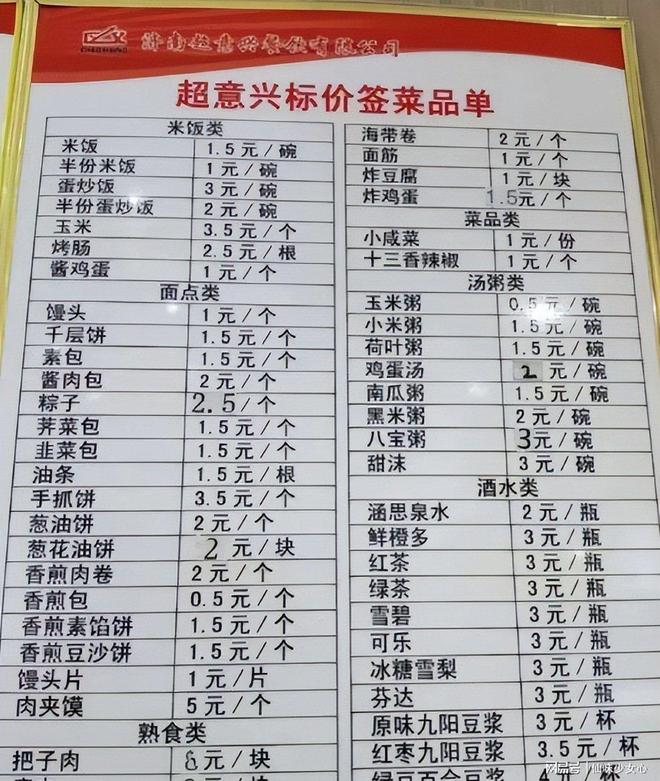 济南超意兴餐饮有限公司
超意兴标价签菜品单
米饭类
米饭 1.5元/碗
半份米饭 1元/碗
蛋炒饭 3元/碗
半份蛋炒饭 2元/碗
玉米 3.5元/个
烤肠 2.5元/根
酱鸡蛋 1元/个
面点类
馒头 1元/个
千层饼 1.5元/个
素包 1.5元/个
酱肉包 2元/个
粽子 2.5/个
荠菜包 1.5元/个
韭菜包 1.5元/个
油条 1.5元/根
手抓饼 3.5元/个
葱油饼 2元/个
葱花油饼 2元/块
香煎肉卷 2元/个
香煎包 0.5元/个
香煎素馅饼 1.5元/个
香煎豆沙饼 1.5元/个
馒头片 1元/片
肉夹馍 5元/个
熟食类
把子肉 元/块
海带卷 2元/个
面筋 1元/个
炸豆腐 1元/块
炸鸡蛋 1.5元/个
菜品类
小咸菜 1元/份
十三香辣椒 1元/个
汤粥类
玉米粥 0.5元/碗
小米粥 1.5元/碗
荷叶粥 1.5元/碗
鸡蛋汤 2元/碗
南瓜粥 1.5元/碗
黑米粥 2元/碗
八宝粥 3元/碗
甜沫 3元/碗
酒水类
涵思泉水 2元/瓶
鲜橙多 3元/瓶
红茶 3元/瓶
绿茶 3元/瓶
雪碧 3元/瓶
可乐 3元/瓶
冰糖雪梨 3元/瓶
芬达 3元/瓶
原味九阳豆浆 3元/杯
红枣九阳豆浆 3.5元/杯
搜狐号@仙味少女心